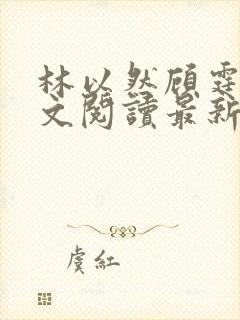 林以然顾霆
文閱讀最新
虞紅